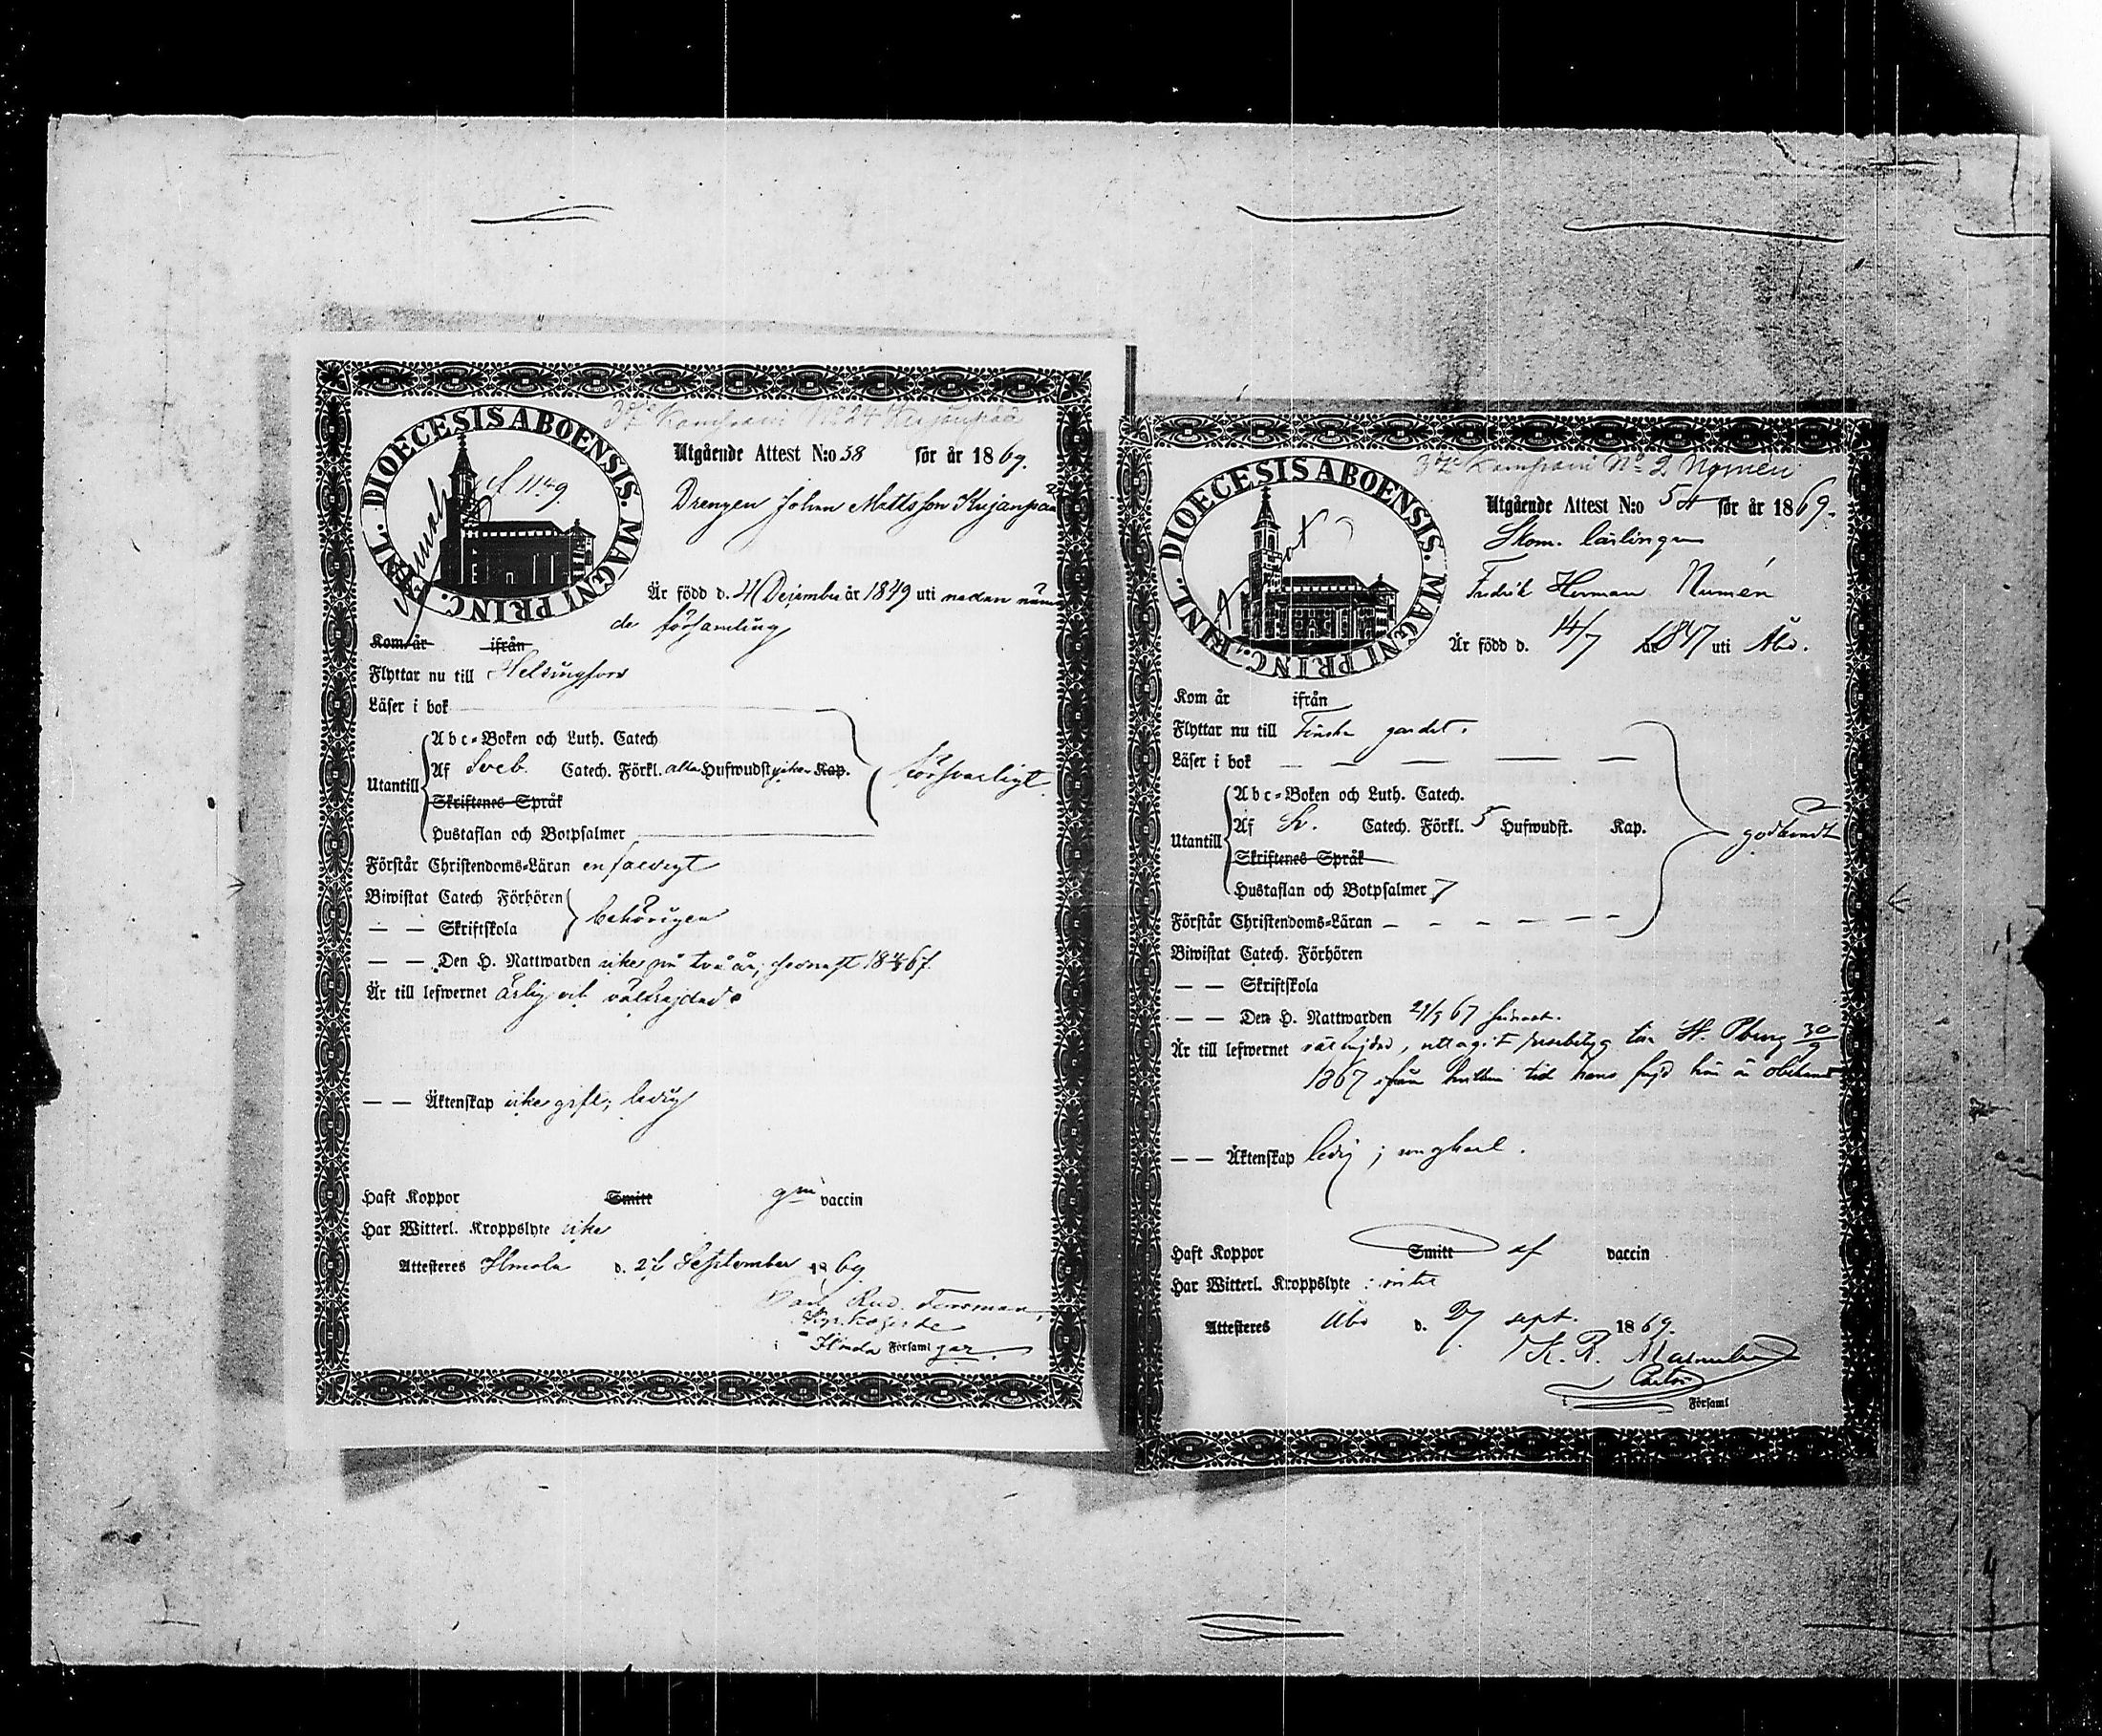 3de Kompani No 24 Kujanpää
DIOECESIS ABOENSIS. MAGNI PRINC. FINL.
Utgående Attest N:o 58 för år 1869.
Drengen Johan Mattsson Kujanpää
Är född d. 4 December år 1849 uti nedan nämn
de församling
Kom år ifrån
Flyttar nu till Helsingfors
Läser i bok
Abc-Boken och Luth. Catech
Utantill Af Sveb. Catech. Förkl. alla Hufwudstycken Kap. försvarligt
Skriftenes Språk
Hustaflan och Botpsalmer
Förstår Christendoms-Läran enfaldigt
Biwistat Catech Förhören
— — Skriftskola behörigen
— — Den H. Nattwarden icke på två år, senast 1867.
Är till lefwernet ärlig och välfrejdad.
— — Äktenskap icke gift; ledig
Haft Koppor Smitt gm vaccin
Har Witterl. Kroppslyte icke
Attesteres Ilmola d. 26 September 1869
Carl Rud. Forsman,
Kyrkoherde
i Ilmola Församl gar.
3de Kompani No 2 Nomén
DIOECESIS ABOENSIS. MAGNI PRINC. FINL.
Utgående Attest N:o 54 för år 1869.
Skom. lärlingen
Fredrik Herman Numén
Är född d. 14/7 år 1847 uti Åbo.
Kom år ifrån
Flyttar nu till Finska gardet.
Läser i bok — — — — —
Abc-Boken och Luth. Catech.
Utantill Af Sv. Catech. Förkl. 5 Hufwudst. Kap. godkändt
Skriftenes Språk
Hustaflan och Botpsalmer 7
Förstår Christendoms-Läran — — — — — —
Biwistat Catech. Förhören
— — Skriftskola
— — Den H. Nattwarden 21/5 67 senast.
Är till lefwernet välfrejdad, uttagit prestbetyg till St. Pburg 30/9
1867 ifrån hvilken tid hans frejd här är obekant
— — Äktenskap ledig; ungkarl.
Haft Koppor Smitt af vaccin
Har Witterl. Kroppslyte : intet
Attesteres Åbo d. 27 sept. 1869.
K. R. Malmberg
Pastor
i Församl